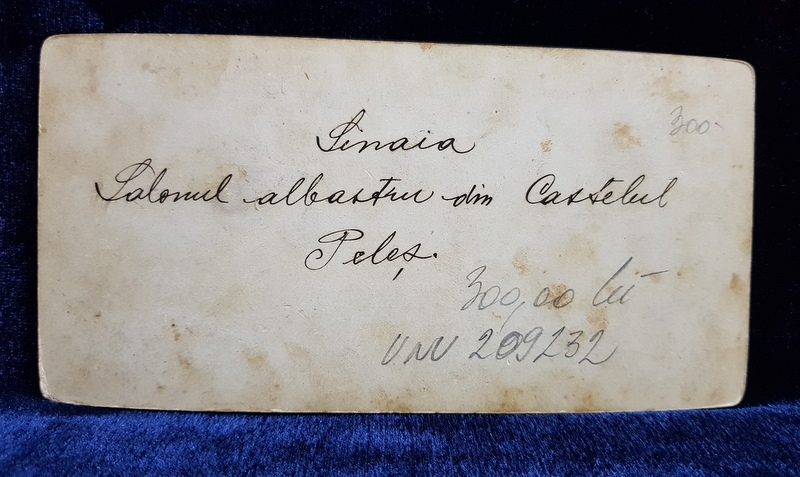 300-
Sinaia
Salonul albastru din Castelul
Peleș.
300,00 lei
209232